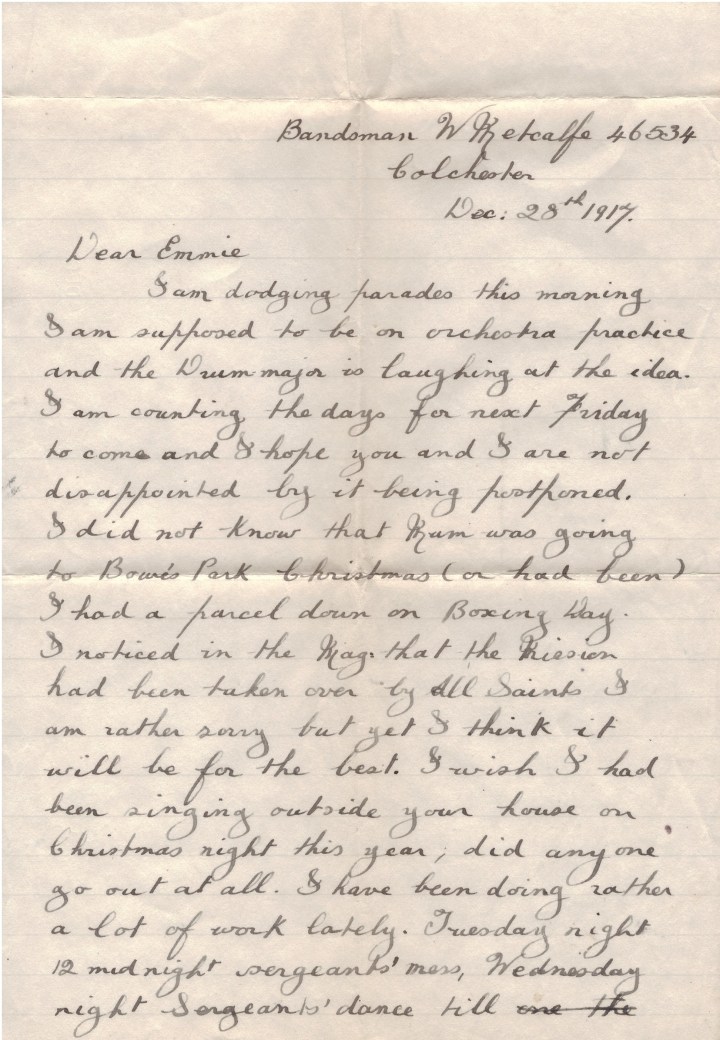 Bandsman W Metcalfe 46534
Colchester
Dec: 28th 1917.
Dear Emmie
I am dodging parades this morning
I am supposed to be on orchestra practice
and the Drum major is laughing at the idea.
I am counting the days for next Friday
to come and I hope you and I are not
disappointed by it being postponed.
I did not know that Mum was going
to Bowes Park Christmas (or had been)
I had a parcel down on Boxing Day.
I noticed in the Mag: that the Mission
had been taken over by All Saints I
am rather sorry but yet I think it
will be for the best. I wish I had
been singing outside your house on
Christmas night this year, did anyone
go out at all. I have been doing rather
a lot of work lately. Tuesday night
12 midnight sergeants' mess, Wednesday
night Sergeants' dance till one the